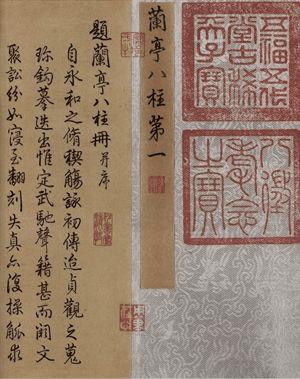 五福五代
堂古稀
天子寶
八徵
耄念
之寶
蘭亭八柱第一
題蘭亭八柱冊并序
自永和之脩禊觴詠初傳迨貞觀之蒐
珎鉤摹迭出惟定武馳聲籍甚而闕文
聚訟紛如寖至翻刻失真亦復操觚求